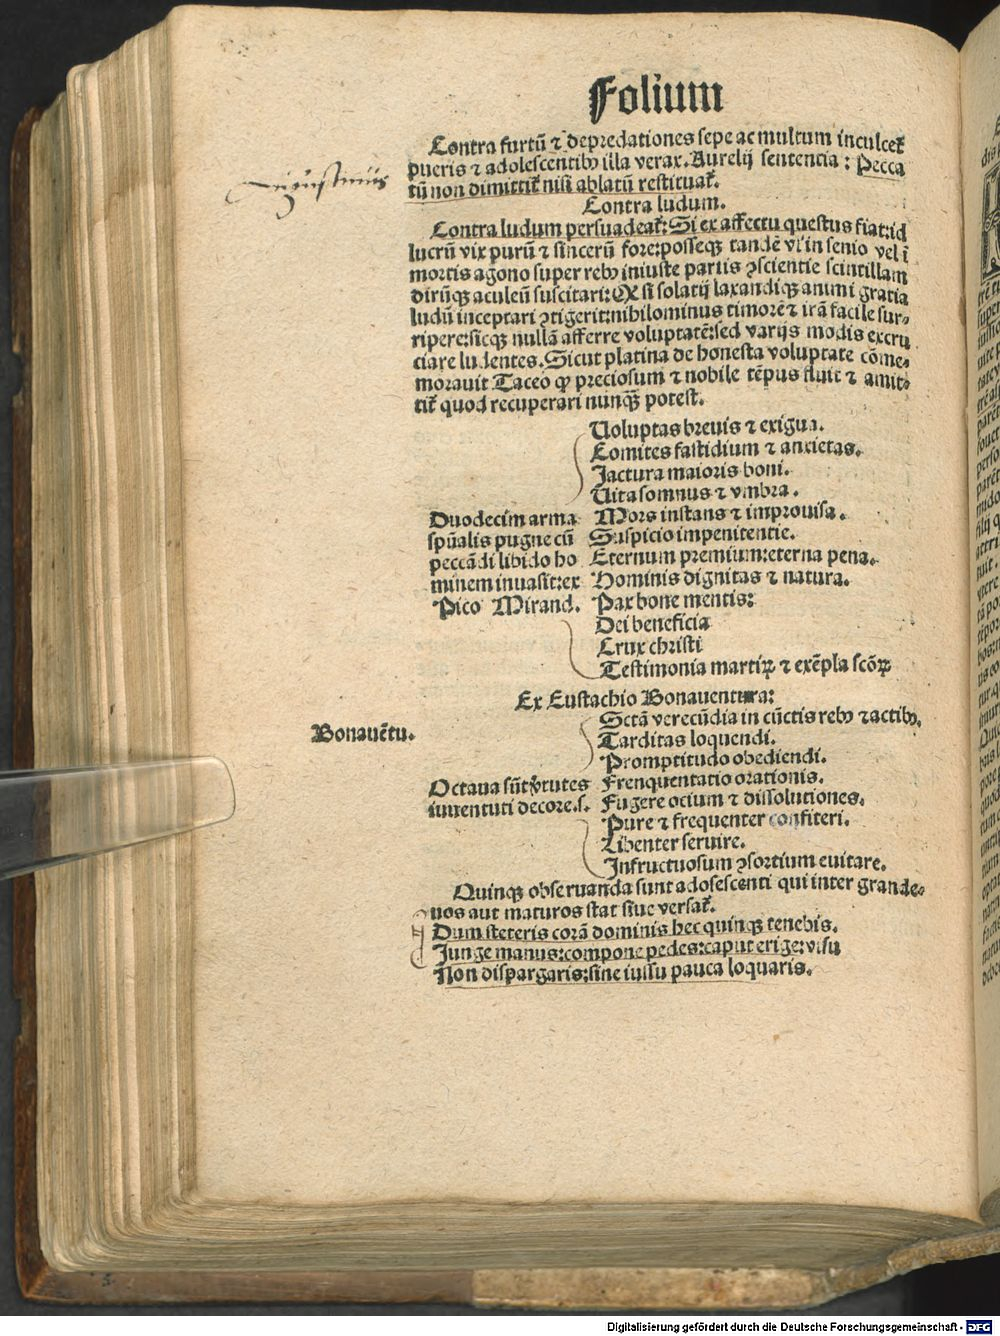 Folium
Contra furtū ⁊ depredationes sepe ac multum inculcet᷑
pueris ⁊ adolescentibꝰ illa verax. Aurelij sentencia : Pecca
tū non dimittit᷑ nisi ablatū restituat᷑.
Augustinus
Contra ludum.
Contra ludum persuadeat᷑: Si ex affectu questus fiat: id
lucrū vix purū ⁊ sincerū fore: posseqꝫ tandē vl' in senio vel ī
mortis agono super rebꝰ iniuste partis ꝯscientie scintillam
dirūqꝫ aculeū suscitari: Qꝙ si solatij laxandiqꝫ animi gratia
ludū inceptari ꝯtigerit: nihilominus timorē ⁊ irā facile sur-
ripere: sicqꝫ nullā afferre voluptatē: sed varijs modis excru
ciare ludentes. Sicut platina de honesta voluptate cōme-
morauit Taceo ꝙ preciosum ⁊ nobile tēpus fluit ⁊ amit-
tit᷑ quod recuperari nunqꝫ̄ potest.
Duodecim arma
spūalis pugne cū
peccādi libido ho
minem inuasit: ex
Pico Mirand.
Uoluptas breuis ⁊ exigua.
Comites fastidium ⁊ anxietas.
Jactura maioris boni.
Uita somnus ⁊ vmbra.
Mors instans ⁊ improuisa.
Suspicio impenitentie.
Eternum premium: eterna pena.
Hominis dignitas ⁊ natura.
Pax bone mentis:
Dei beneficia
Crux christi
Testimonia martiꝝ ⁊ exēpla scōꝝ
Ex Eustachio Bonauentura:
Bonauētu.
Octaua sūt v̓tutes
iuuentuti decore.s.
Sctā verecūdia in cūctis rebꝰ ⁊ actibꝰ.
Tarditas loquendi.
Promptitudo obediendi.
Frenquentatio orationis.
Fugere ocium ⁊ dissolutiones.
Pure ⁊ frequenter confiteri.
Libenter seruire.
Infructuosum ꝯsortium euitare.
Quinqꝫ obseruanda sunt adosescenti qui inter grande-
uos aut maturos stat siue versat᷑.
Dum steteris corā dominis hec quinqꝫ tenebis.
Junge manus: compone pedes: caput erige: visu
Non dispargaris: sine iussu pauca loquaris.
Digitalisierung gefördert durch die Deutsche Forschungsgemeinschaft - DFG